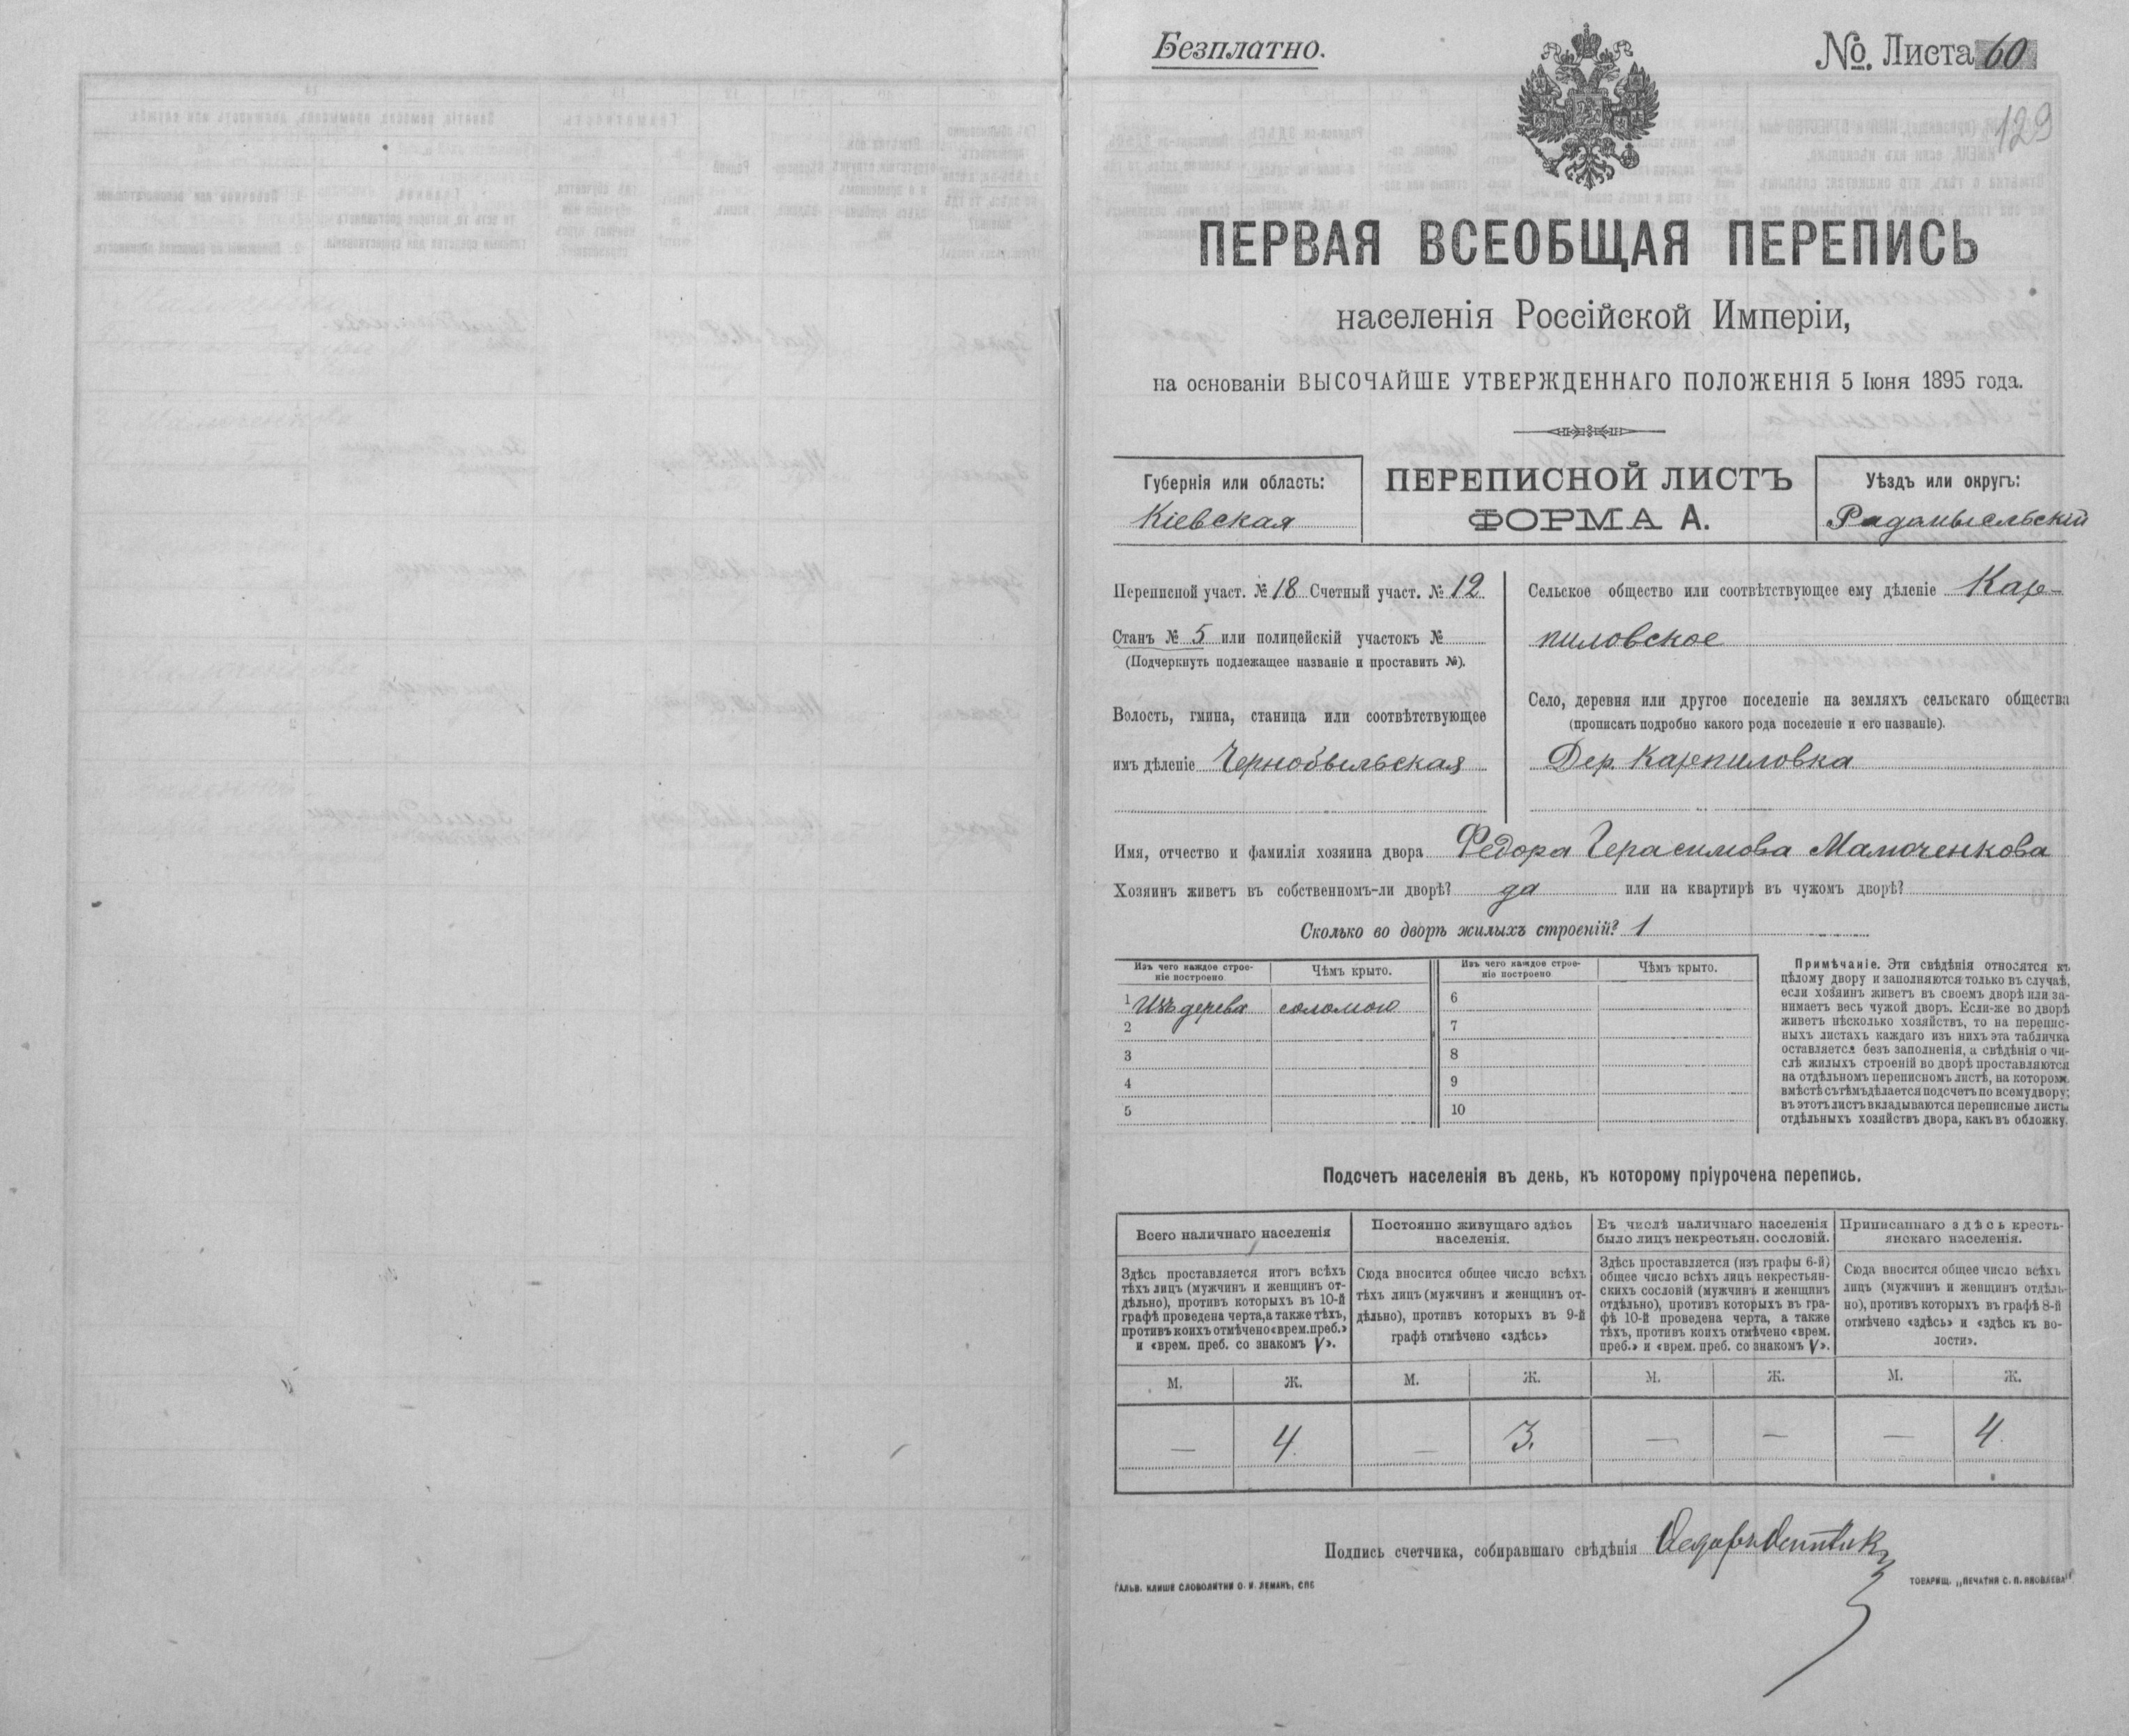 Безплатно.
№. Листа 60
129
ПЕРВАЯ ВСЕОБЩАЯ ПЕРЕПИСЬ
населенія Россійской Имперіи,
на основаніи ВЫСОЧАЙШЕ УТВЕРЖДЕННАГО ПОЛОЖЕНІЯ 5 Іюня 1895 года.
Губернія или область:
Кіевская
ПЕРЕПИСНОЙ ЛИСТЪ
ФОРМА А.
Уѣздъ или округъ:
Радомысльскій
Переписной участ. № 18 Счетный участ. № 12
Станъ № 5 или полицейскій участокъ №
(Подчеркнуть подлежащее названіе и проставить №).
Волость, гмина, станица или соотвѣтствующее
имъ дѣленіе Чернобыльская
Сельское общество или соотвѣтствующее ему дѣленіе Кар-
пиловское
Село, деревня или другое поселеніе на земляхъ сельскаго общества
(прописать подробно какого рода поселеніе и его названіе).
Дер. Карпиловка
Имя, отчество и фамилія хозяина двора Федора Герасимова Мамоченкова
Хозяинъ живетъ въ собственномъ-ли дворѣ? да или на квартирѣ въ чужомъ дворѣ?
Сколько во дворѣ жилыхъ строеній? 1
Изъ чего каждое строе-
ніе построено
Чѣмъ крыто.
Изъ чего каждое строе-
ніе построено
Чѣмъ крыто.
1 Изъ дерева соломою
2
3
4
5
6
7
8
9
10
Примѣчаніе. Эти свѣдѣнія относятся къ
цѣлому двору и заполняются только въ случаѣ,
если хозяинъ живетъ въ своемъ дворѣ или за-
нимаетъ весь чужой дворъ. Если-же во дворѣ
живетъ нѣсколько хозяйствъ, то на перепис-
ныхъ листахъ каждаго изъ нихъ эта табличка
оставляется безъ заполненія, а свѣдѣнія о чи-
слѣ жилыхъ строеній во дворѣ проставляются
на отдѣльномъ переписномъ листѣ, на которомъ
вмѣстѣ съ тѣмъ дѣлается подсчетъ по всему двору;
въ этотъ листъ вкладываются переписные листы
отдѣльныхъ хозяйствъ двора, какъ въ обложку.
Подсчетъ населенія въ день, къ которому пріурочена перепись.
Всего наличнаго населенія
Здѣсь проставляется итогъ всѣхъ
тѣхъ лицъ (мужчинъ и женщинъ от-
дѣльно), противъ которыхъ въ 10-й
графѣ проведена черта, а также тѣхъ,
противъ коихъ отмѣчено «врем. преб.»
и «врем. преб. со знакомъ V».
Постоянно живущаго здѣсь
населенія.
Сюда вносится общее число всѣхъ
тѣхъ лицъ (мужчинъ и женщинъ от-
дѣльно), противъ которыхъ въ 9-й
графѣ отмѣчено «здѣсь»
Въ числѣ наличнаго населенія
было лицъ некрестьян. сословій.
Здѣсь проставляется (изъ графы 6-й)
общее число всѣхъ лицъ некрестьян-
скихъ сословій (мужчинъ и женщинъ
отдѣльно), противъ которыхъ въ гра-
фѣ 10-й проведена черта, а также
тѣхъ, противъ коихъ отмѣчено «врем.
преб.» и «врем. преб. со знакомъ V».
Приписаннаго здѣсь кресть-
янскаго населенія.
Сюда вносится общее число всѣхъ
лицъ (мужчинъ и женщинъ отдѣль-
но), противъ которыхъ въ графѣ 8-й
отмѣчено «здѣсь» и «здѣсь къ во-
лости».
М. Ж. М. Ж. М. Ж. М. Ж.
— 4. — 3. — — — 4
Подпись счетчика, собиравшаго свѣдѣнія
ГАЛЬВ. КЛИШЕ СЛОВОЛИТНИ О. И. ЛЕМАНЪ, СПБ
ТОВАРИЩ. „ПЕЧАТНЯ С. П. ЯКОВЛЕВА"